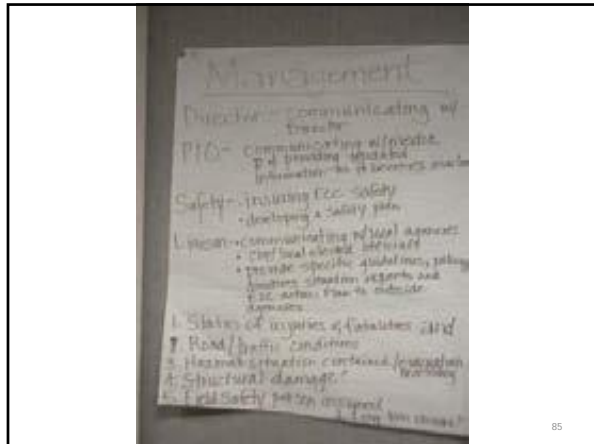 Management
Director - communicating w/
PIO - communicating w/media
providing updated
information as it becomes
Safety - insuring EOC safety
• developing a safety plan
Liaison - • communicating w/local agencies
• local elected officials
• provide specific guidelines,
situation reports and
EOC action plan to outside
agencies
1. Status of injuries & fatalities and
Road/traffic conditions
3. Hazmat situation contained/evacuation
4. Structural damage
5. Field Safety person assigned
85